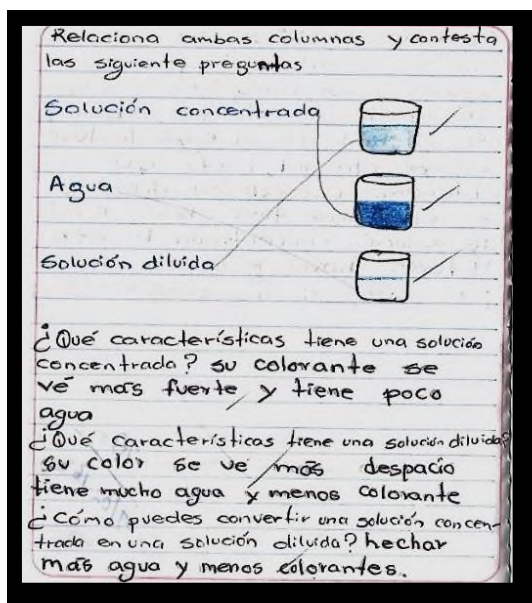 Relaciona ambas columnas y contesta
las siguiente preguntas
Solución concentrada
Agua
Solución diluida
¿Qué características tiene una solución
concentrada? su colorante se
vé más fuerte y tiene poco
agua
¿Qué características tiene una solución diluida?
su color se ve más despacio
tiene mucho agua y menos colorante
¿Cómo puedes convertir una solución concen-
trada en una solución diluida? hechar
más agua y menos colorantes.